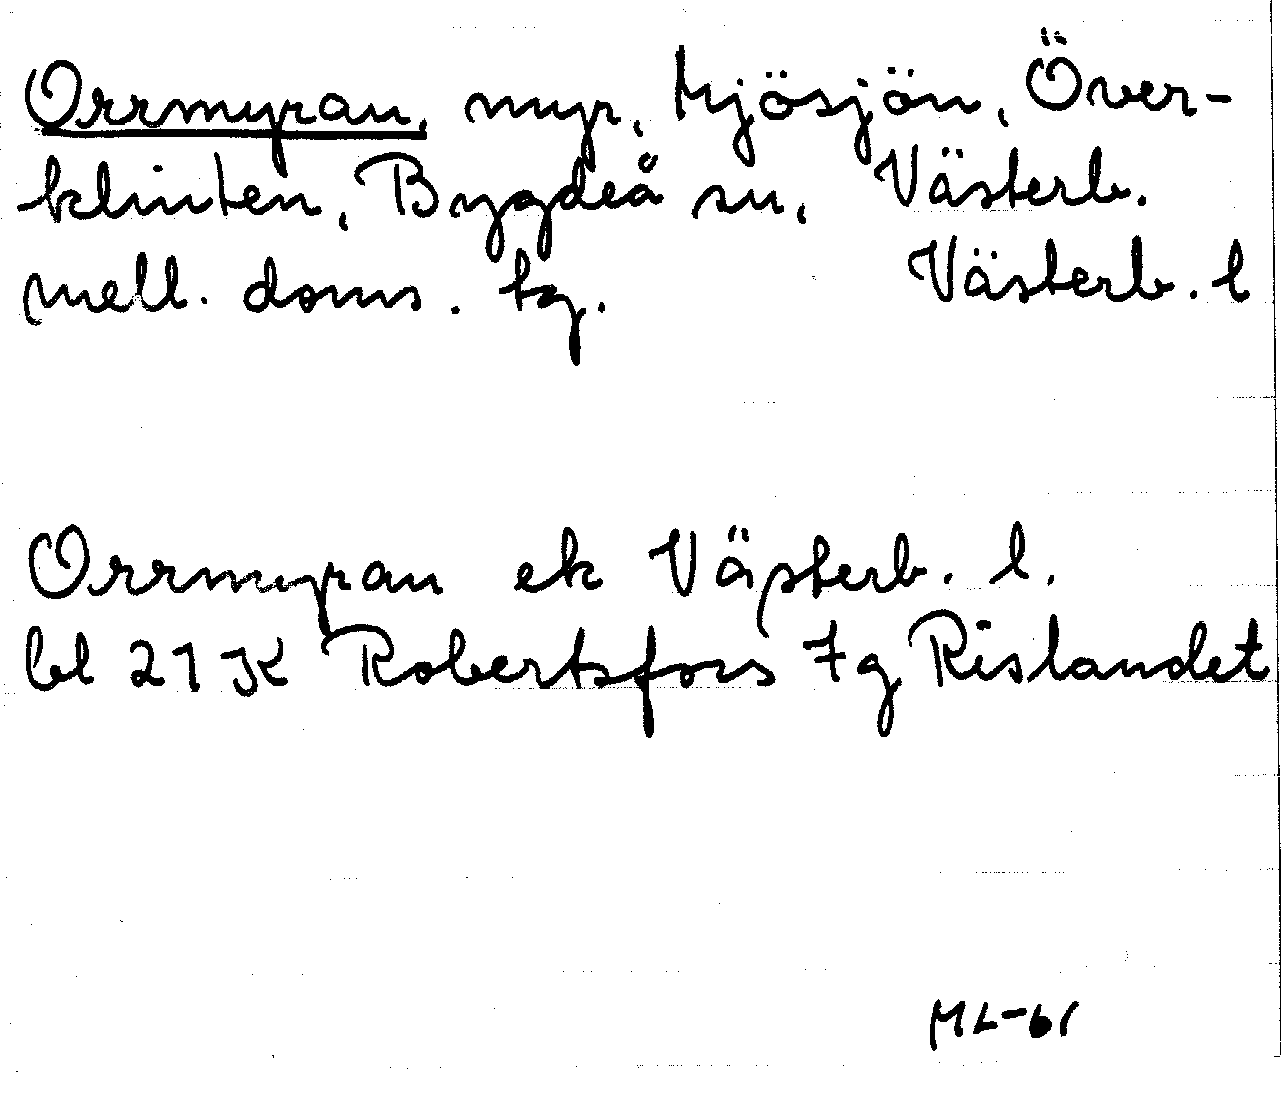 Orrmyran, myr, Mjösjön, Över-
klinten, Bygdeå sn, Västerb.
mell. doms. tg. Västerb. l
Orrmyran ek Västerb. l.
bl 21K Robertsfors 7g Rislandet
ML-61